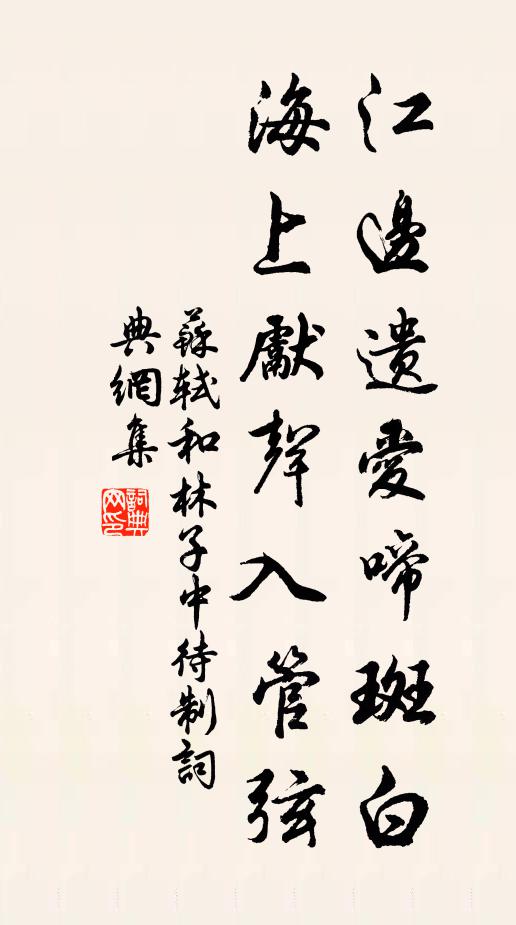 江邊遺愛啼斑白
海上獻聲入管弦
蘇軾和林子中待制詞
典網集
詞典网印